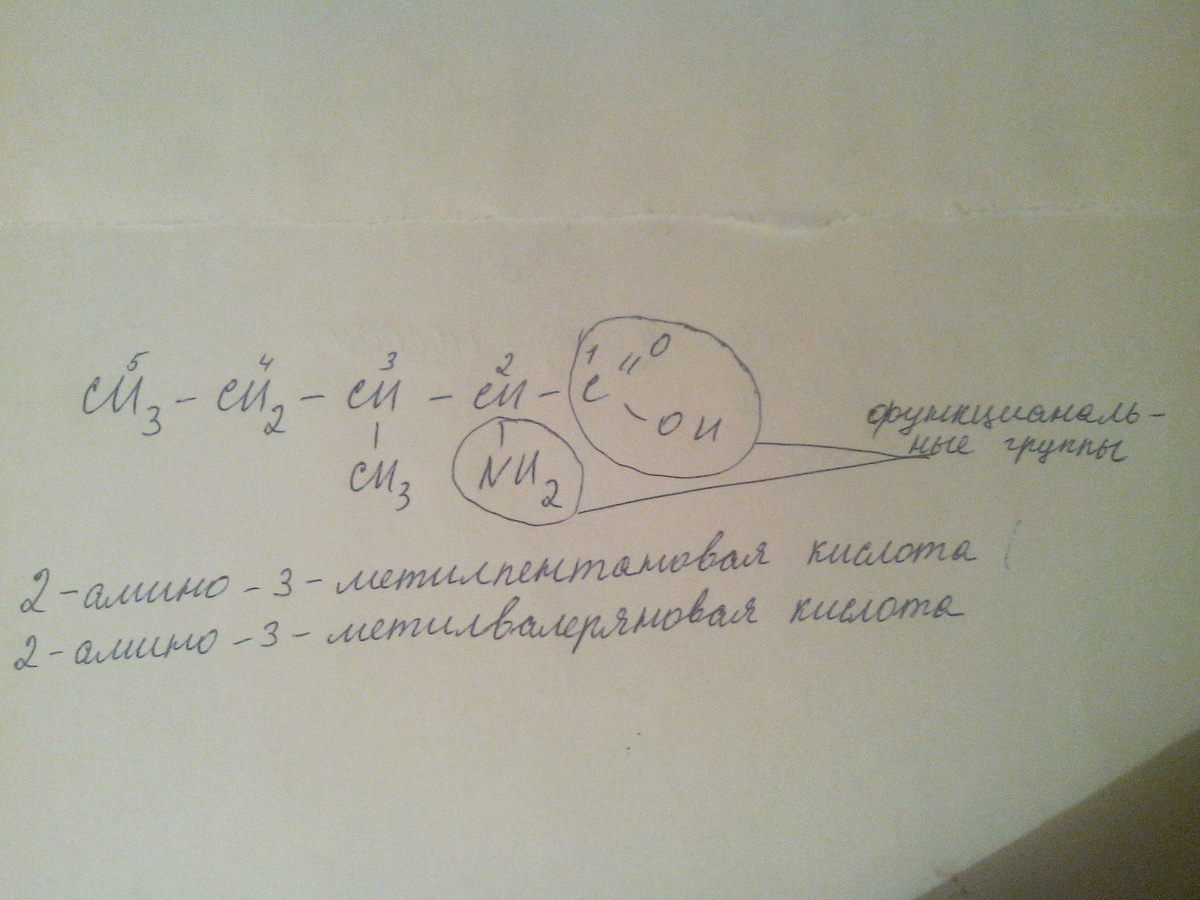 5 4 3 2 1
CH3 - CH2 - CH - CH - C = O
- OH
CH3 NH2
функцианаль-
ные группы
2-амино-3-метилпентановая кислота
2-амино-3-метилвалеряновая кислота